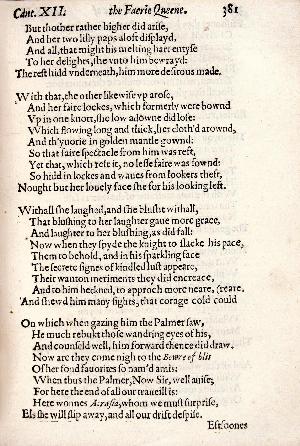 Cant. XII. the Faerie Queene. 381
But th'other rather higher did arise,
And her two lilly paps aloft displayd,
And all, that might his melting hart entyse
To her delights, she vnto him bewrayd:
The rest hidd vnderneath, him more desirous made.
With that, the other likewise vp arose,
And her faire lockes, which formerly were bownd
Vp in one knott, she low adowne did lose:
Which flowing long and thick, her cloth'd arownd,
And th'yuorie in golden mantle gownd:
So that faire spectacle from him was reft,
Yet that, which reft it, no lesse faire was fownd:
So hidd in lockes and waues from lookers theft,
Nought but her louely face she for his looking left.
Withall she laughed, and she blusht withall,
That blushing to her laughter gaue more grace,
And laughter to her blushing, as did fall:
Now when they spyde the knight to slacke his pace,
Them to behold, and in his sparkling face
The secrete signes of kindled lust appeare,
Their wanton meriments they did encreace,
And to him beckned, to approch more neare, (reare.
And shewd him many sights, that corage cold could
On which when gazing him the Palmer saw,
He much rebukt those wandring eyes of his,
And counseld well, him forward thence did draw.
Now are they come nigh to the Bowre of blis
Of her fond fauorites so nam'd amis:
When thus the Palmer, Now Sir, well auise;
For here the end of all our traueill is:
Here wonnes Acrasia, whom we must surprise,
Els she will slip away, and all our drift despise.
Eftsoones